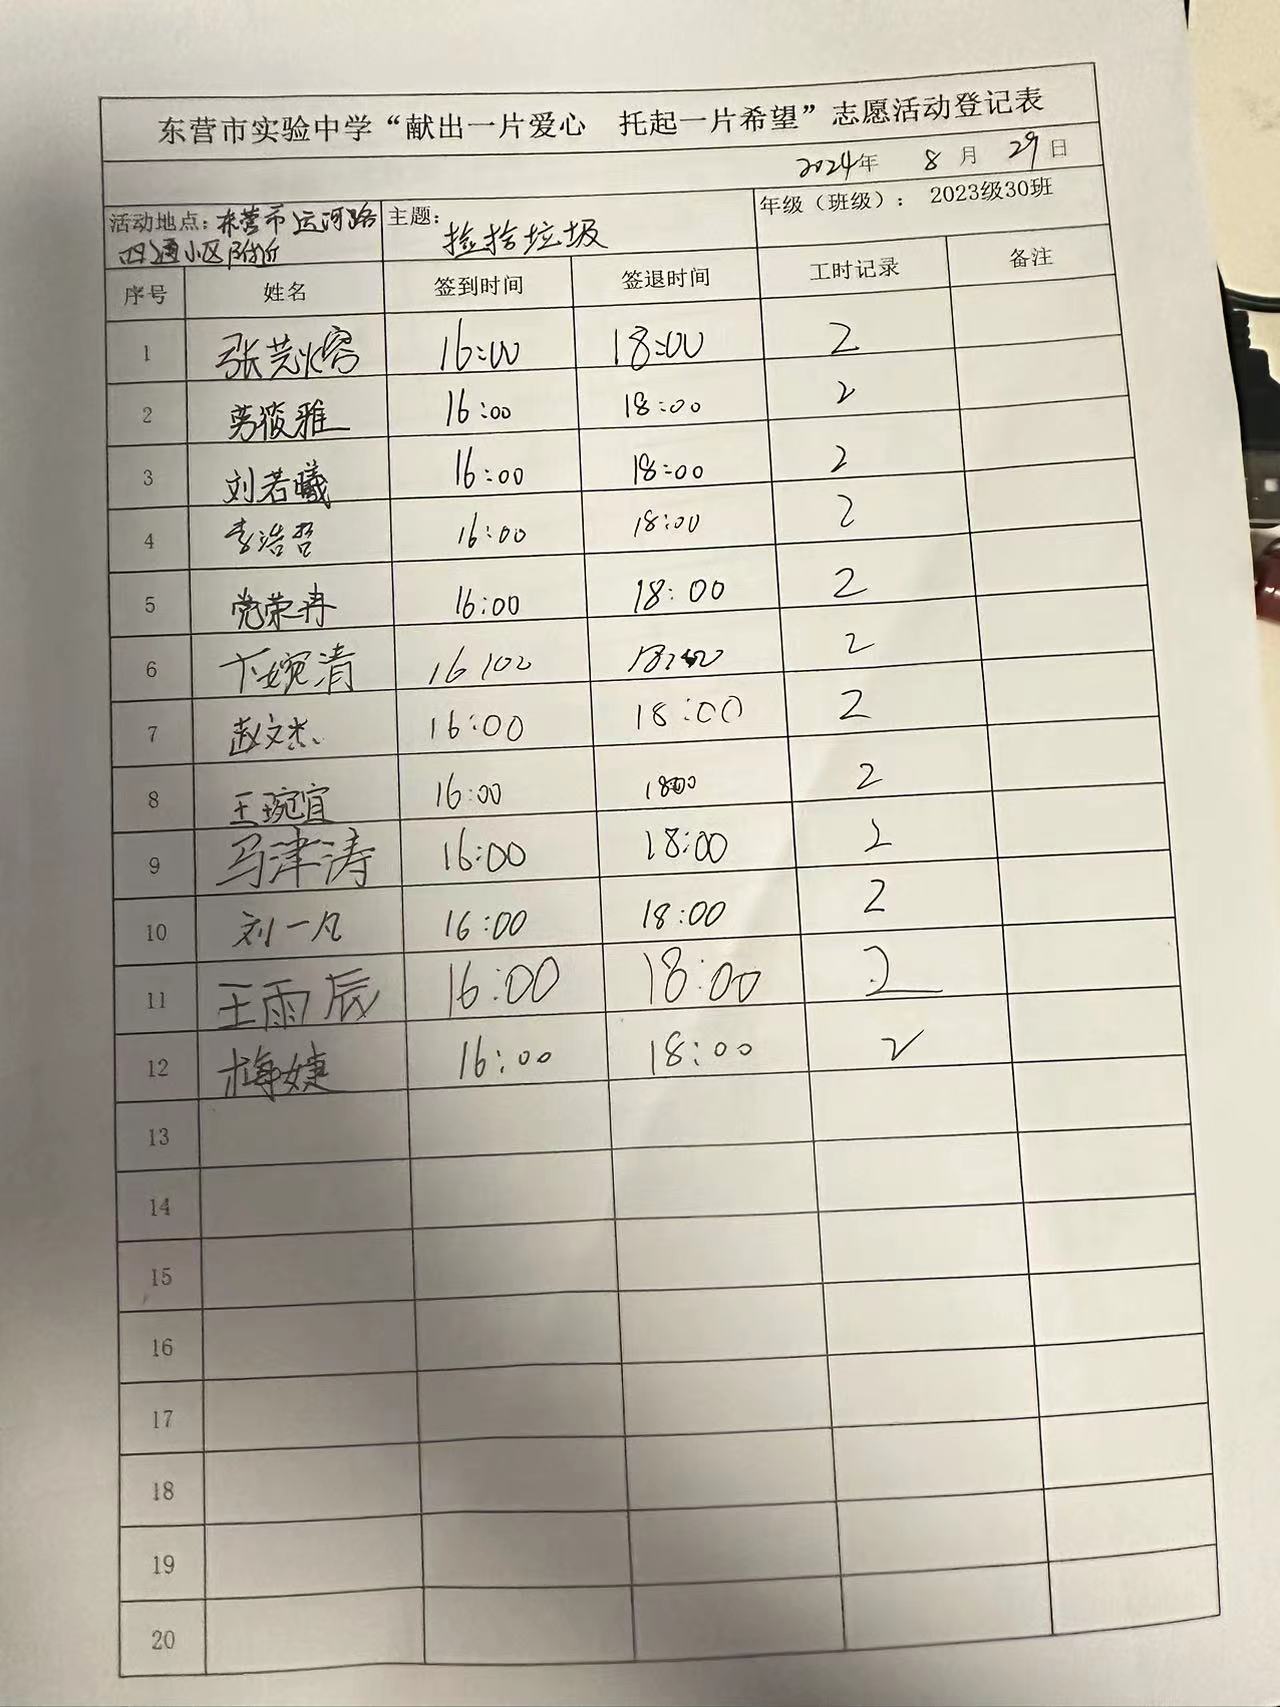 东营市实验中学“献出一片爱心 托起一片希望”志愿活动登记表
2024年 8月 29日
活动地点：东营市运河路 主题： 捡拾垃圾 年级（班级）： 2023级30班
四通小区附近
序号 姓名 签到时间 签退时间 工时记录 备注
1 张芸熔 16:00 18:00 2
2 筱雅 16:00 18:00 2
3 刘若曦 16:00 18:00 2
4 李浩哲 16:00 18:00 2
5 党荣冉 16:00 18:00 2
6 卞婉清 16:00 18:00 2
7 赵文杰 16:00 18:00 2
8 王琬宜 16:00 18:00 2
9 马津涛 16:00 18:00 2
10 刘一凡 16:00 18:00 2
11 王雨辰 16:00 18:00 2
12 梅婕 16:00 18:00 2
13
14
15
16
17
18
19
20